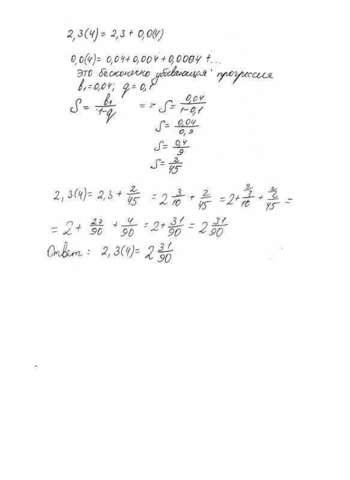 2,3(4) = 2,3 + 0,0(4)
0,0(4) = 0,04 + 0,004 + 0,0004 + ...
это бесконечно убывающая прогрессия
b₁ = 0,04; q = 0,1
S = b₁/1-q => S = 0,04/1-0,1
S = 0,04/0,9
S = 0,4/9
S = 2/45
2,3(4) = 2,3 + 2/45 = 2 3/10 + 2/45 = 2 + 3/10 + 2/45 =
= 2 + 27/90 + 4/90 = 2 + 31/90 = 2 31/90
Ответ: 2,3(4) = 2 31/90